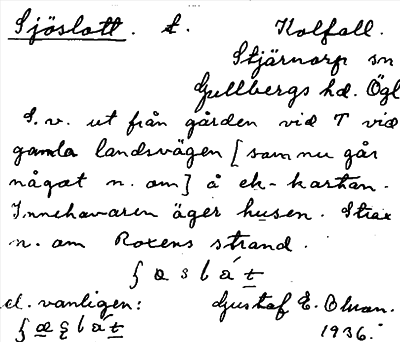 Sjöslott. t. Kolfall.
Stjärnorp sn
Gullbergs hd. Ögl
S. v. ut från gården vid T vid
gamla landsvägen [som nu går
något n. om] å ek-kartan.
Innehavaren äger husen. Strax
n. om Roxens strand.
el. vanligen: Gustaf E. Olson.
1936.